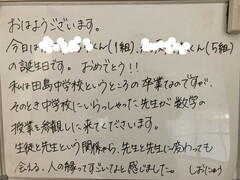 おはようございます。
今日は くん(1組)、 くん(5組)
の誕生日です。おめでとう!!
私は田島中学校というところの卒業なのですが、
そのとき中学校にいらっしゃった先生が数学の
授業を参観しに来てくださいます。
生徒と先生という関係から、先生と先生に変わっても
会える、人の縁ってすごいなと感じました。 しおにゅう